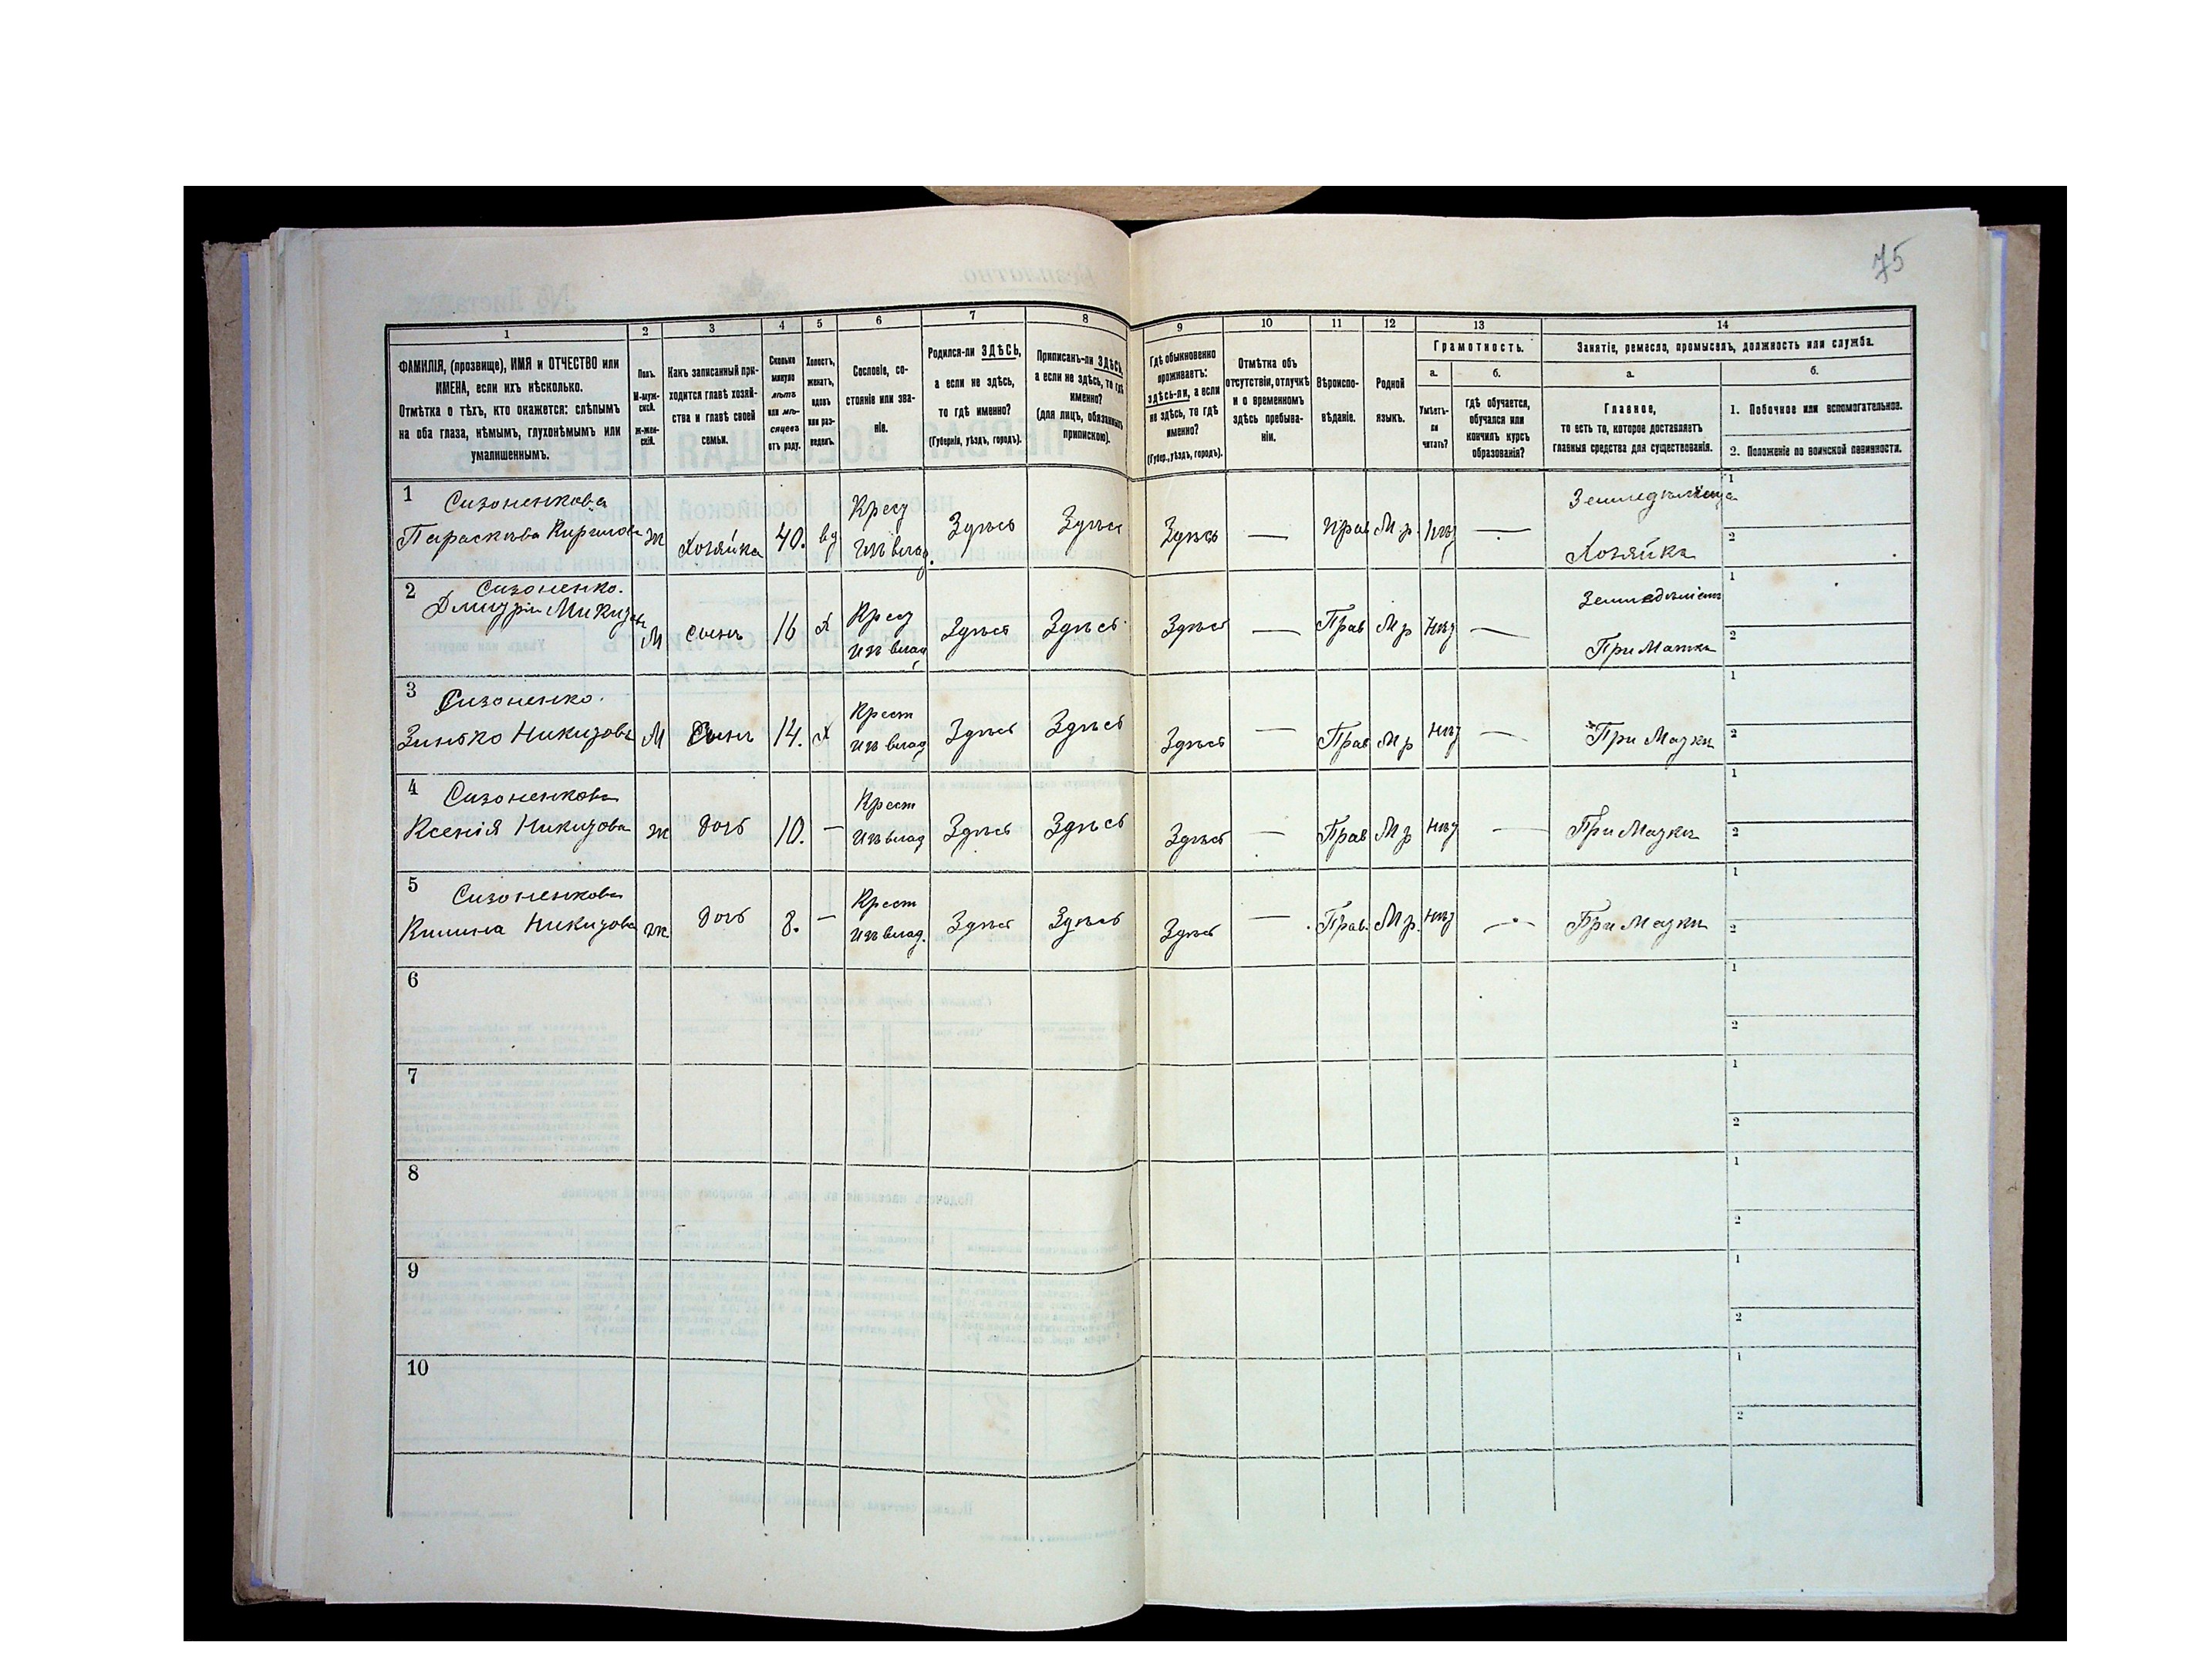 75
1
2
3
4
5
6
7
8
9
10
11
12
13
14
ФАМИЛІЯ, (прозвище), ИМЯ и ОТЧЕСТВО или
ИМЕНА, если ихъ нѣсколько.
Отмѣтка о тѣхъ, кто окажется: слѣпымъ
на оба глаза, нѣмымъ, глухонѣмымъ или
умалишеннымъ.
Полъ.
М-муж-
ской.
Ж-жен-
скій.
Какъ записанный при-
ходится главѣ хозяй-
ства и главѣ своей
семьи.
Сколько
минуло
лѣтъ
или мѣ-
сяцевъ
отъ роду.
Холостъ,
женатъ,
вдовъ
или раз-
веденъ.
Сословіе, со-
стояніе или зва-
ніе.
Родился-ли ЗДѢСЬ,
а если не здѣсь,
то гдѣ именно?
(Губернія, уѣздъ, городъ).
Приписанъ-ли ЗДѢСЬ,
а если не здѣсь, то гдѣ
именно?
(для лицъ, обязанныхъ
припискою).
Гдѣ обыкновенно
проживаетъ:
здѣсь-ли, а если
не здѣсь, то гдѣ
именно?
(Губер., уѣздъ, городъ).
Отмѣтка объ
отсутствіи, отлучкѣ
и о временномъ
здѣсь пребыва-
ніи.
Вѣроиспо-
вѣданіе.
Родной
языкъ.
Грамотность.
а.
Умѣетъ-
ли
читать?
б.
Гдѣ обучается,
обучался или
кончилъ курсъ
образованія?
Занятіе, ремесло, промыселъ, должность или служба.
а.
Главное,
то есть то, которое доставляетъ
главныя средства для существованія.
б.
1. Побочное или вспомогательное.
2. Положеніе по воинской повинности.
1
Сизоненкова
Параскѣва Кирилова
Ж
Хозяйка
40.
вд
Крест
Изъ влад.
Здѣсь
Здѣсь
Здѣсь
—
Прав
М.р.
Нѣт
—
Земледѣлица
Хозяйка
1
2
2
Сизоненко.
Дмитрій Микит
М
сынъ
16
Х
Крест
изъ влад
Здѣсь
Здѣсь
Здѣсь
—
Прав
М р
Нѣт
—
Земледѣліемъ
При Матки
1
2
3
Сизоненко.
Зинько Никитовъ
М
Сынъ
14.
Х
Крест
изъ влад
Здѣсь
Здѣсь
Здѣсь
—
Прав
М р
Нѣт
—
При Матки
1
2
4
Сизоненкова
Ксенія Никитова
ж
дочь
10.
—
Крест
Изъ влад
Здѣсь
Здѣсь
Здѣсь
—
Прав
М р
Нѣт
—
При Матки
1
2
5
Сизоненкова
Килина Никитова
ж
дочь
8.
—
Крест
Изъ влад.
Здѣсь
Здѣсь
Здѣсь
—
Прав.
М р.
Нѣт
—
При Матки
1
2
6
1
2
7
1
2
8
1
2
9
1
2
10
1
2